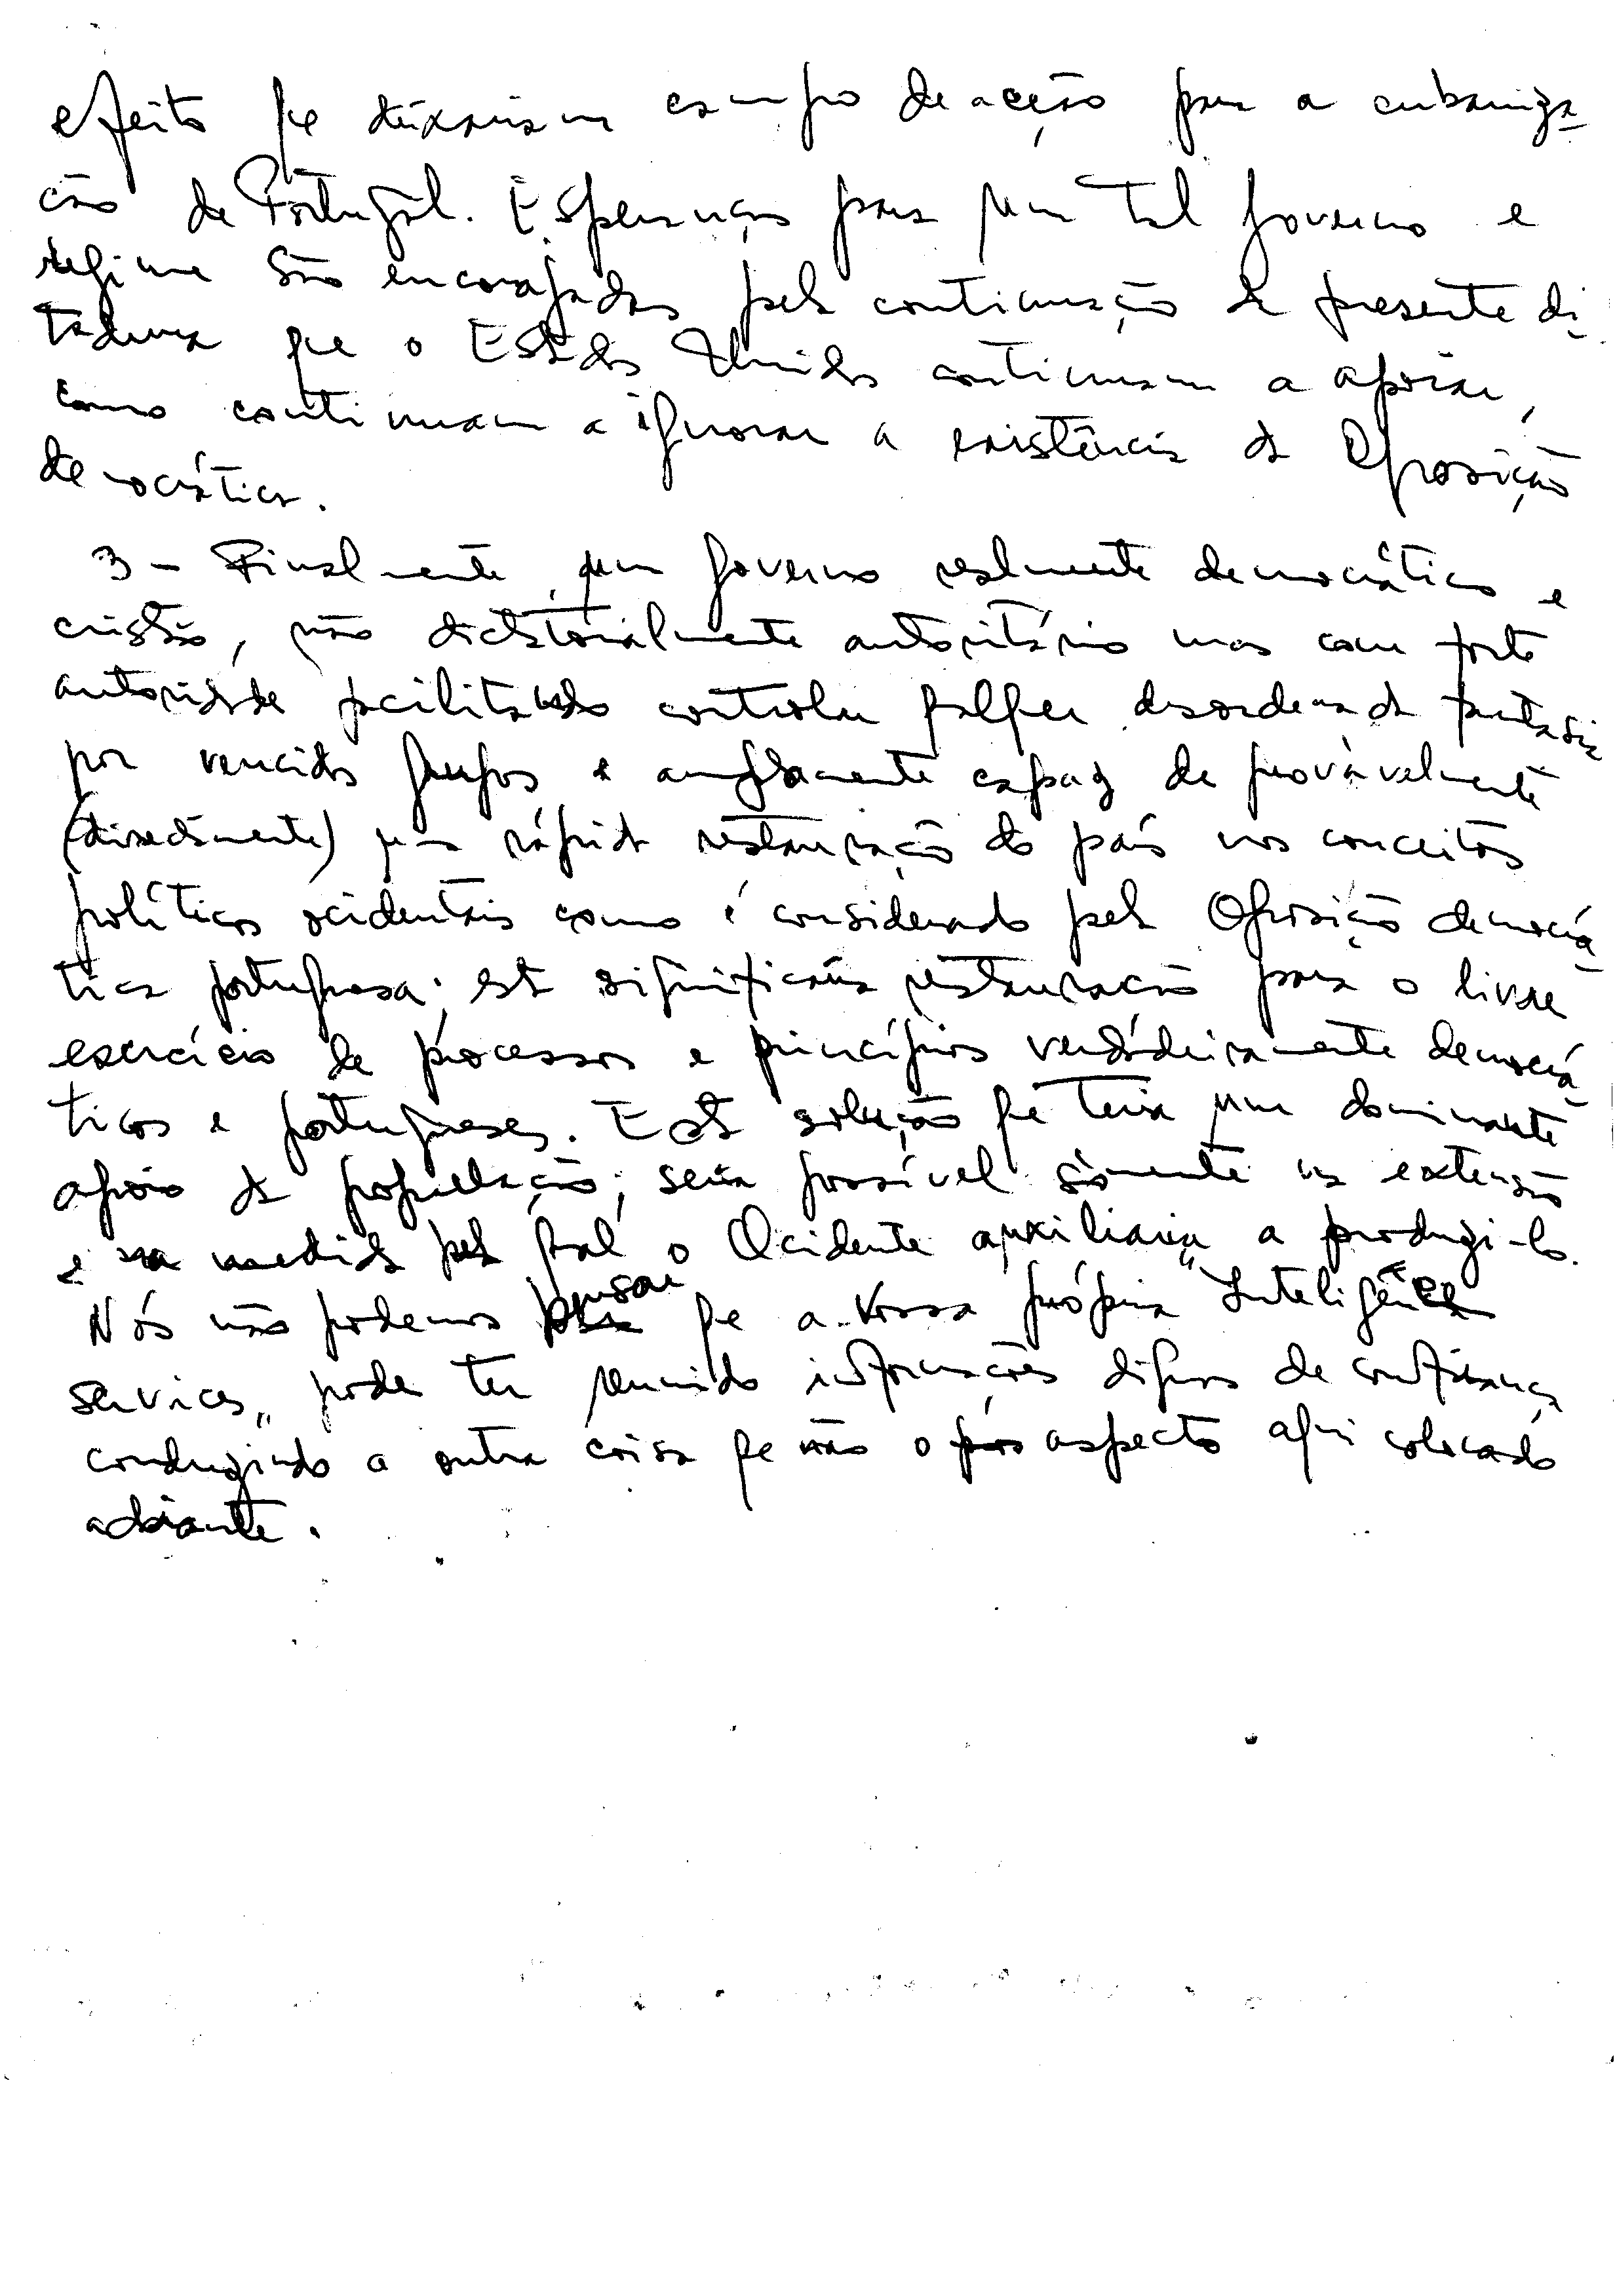 efeito que deixariam campo de acção para a cubaniza-
ção de Portugal. Esperanças para um tal governo e
regime são encorajadas pela continuação da presente di-
tadura que o Estados Unidos continuam a apoiar,
como continuam a ignorar a existência da Oposição
democrática.
3 - Finalmente, um governo realmente democrático e
cristão, não dictatorialmente autoritário mas com forte
autoridade facilitando controlar qualquer desordenada fantasia
por vencidos grupos e amplamente capaz de provàvelmente
(directamente) uma rápida restauração do país nos conceitos
políticos ocidentais como é considerado pela Oposição democrá-
tica portuguesa; esta significaria restauração para o livre
exercício de processos e princípios verdadeiramente democrá-
ticos e portugueses. Esta solução que teria um dominante
apoio da população, seria possível sòmente na extensão
e na medida pela qual o Ocidente auxiliaria a produzi-lo.
Nós não podemos pensar que a vossa própria "Inteligence
services" pode ter reunido informações dignas de confiança
conduzindo a outra coisa que não o aspecto aqui colocado
adiante.